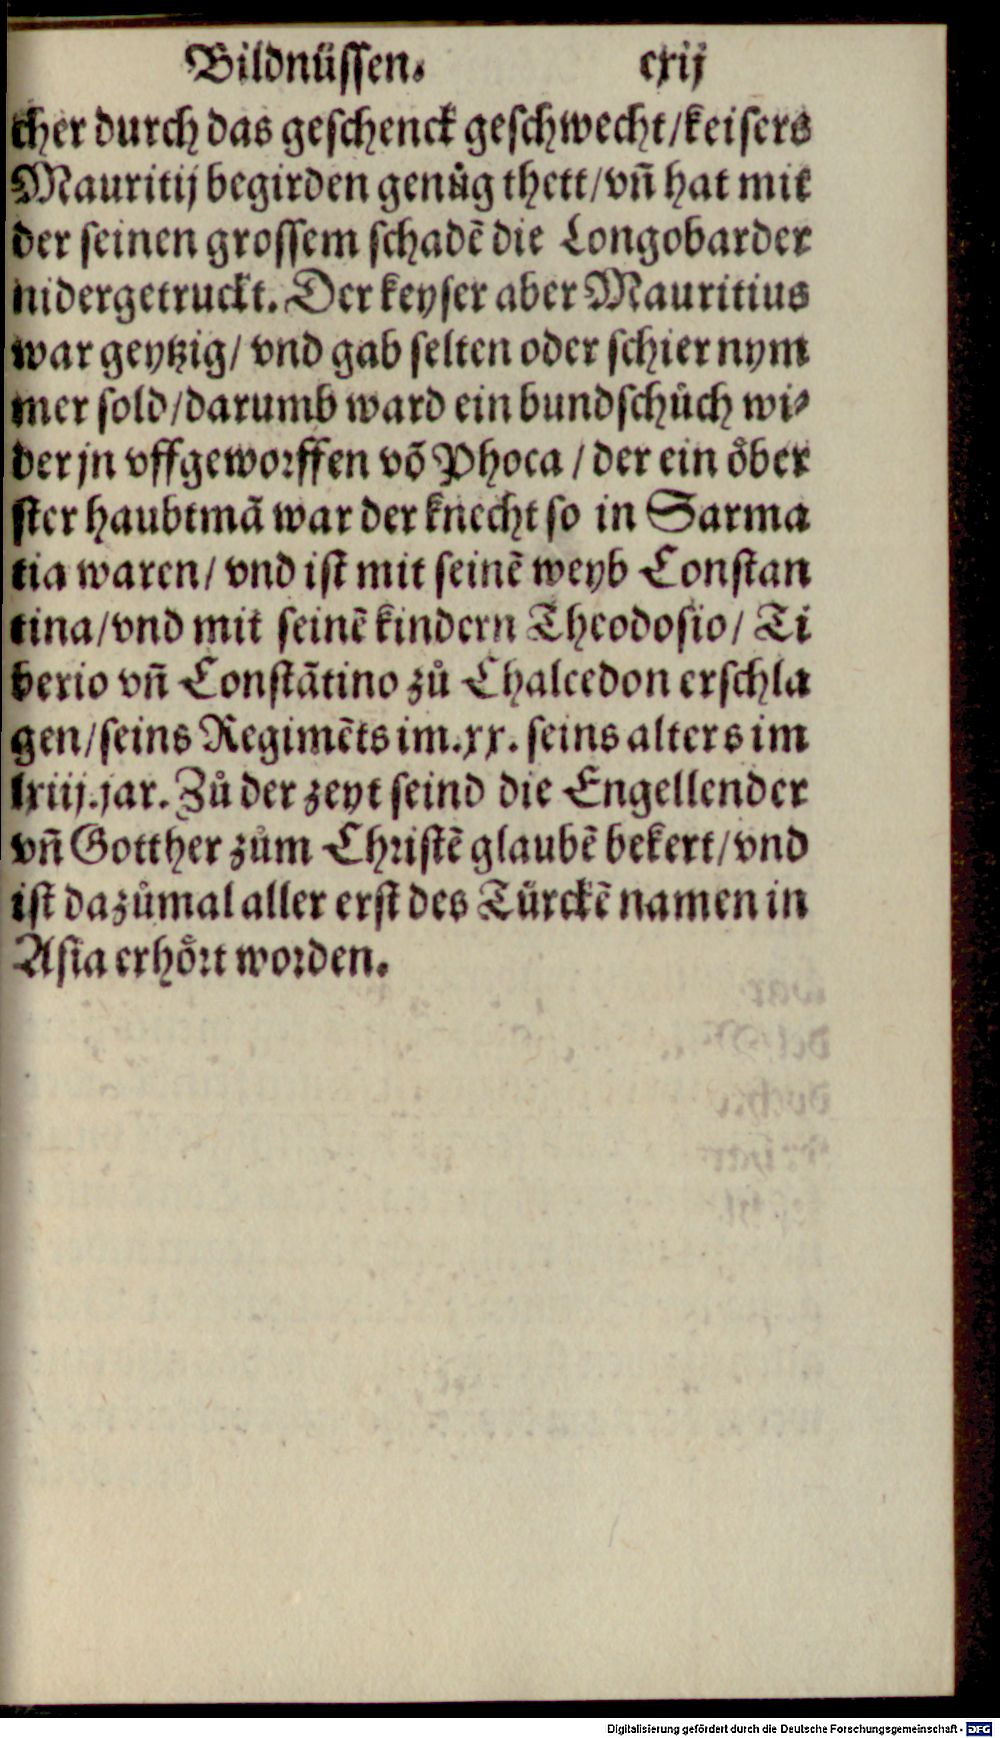 Bildnüssen. cxij
cher durch das geschenck geschwecht/keisers
Mauritij begirden genůg thett/vñ hat mit
der seinen grossem schadẽ die Longobarder
nidergetruckt. Der keyser aber Mauritius
war geytzig/ vnd gab selten oder schier nym
mer sold/darumb ward ein bundschůch wi⸗
der jn vffgeworffen võ Phoca / der ein öber
ster haubtmã war der knecht so in Sarma
tia waren/ vnd ist mit seinẽ weyb Constan
tina/vnd mit seinẽ kindern Theodosio/ Ti
berio vñ Constãtino zů Chalcedon erschla
gen/seins Regimẽts im.xx. seins alters im
lxiij.jar. Zů der zeyt seind die Engellender
vñ Gotther zům Christẽ glaubẽ bekert/vnd
ist dazůmal aller erst des Türckẽ namen in
Asia erhört worden.
Digitalisierung gefördert durch die Deutsche Forschungsgemeinschaft - DFG